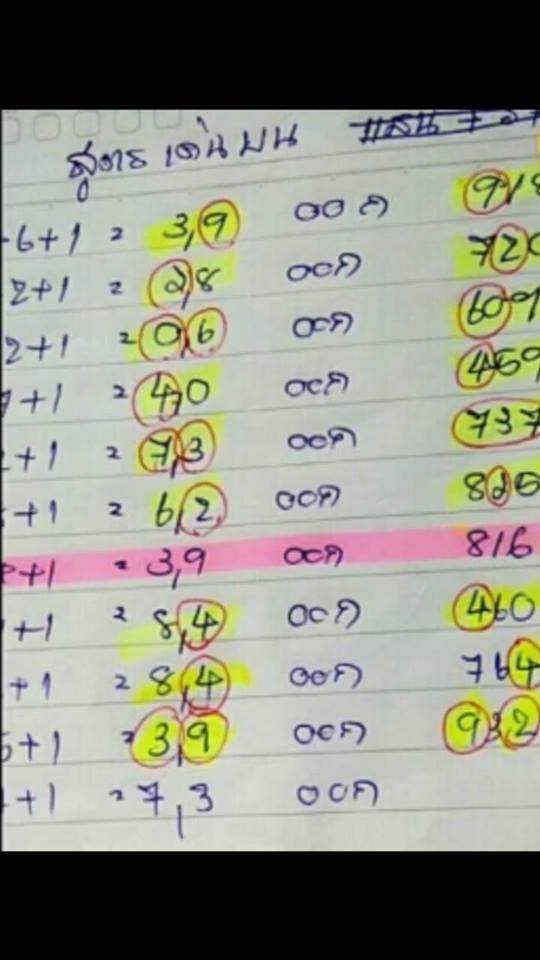 สูตร เด่น บน
6+1 = 3,9 ออก 918
2+1 = 2,8 ออก 720
2+1 = 0,6 ออก 609
+1 = 4,0 ออก 459
+1 = 7,3 ออก 737
+1 = 6,2 ออก 826
+1 = 3,9 ออก 816
+1 = 8,4 ออก 460
+1 = 8,4 ออก 764
5+1 = 3,9 ออก 932
+1 = 7,3 ออก